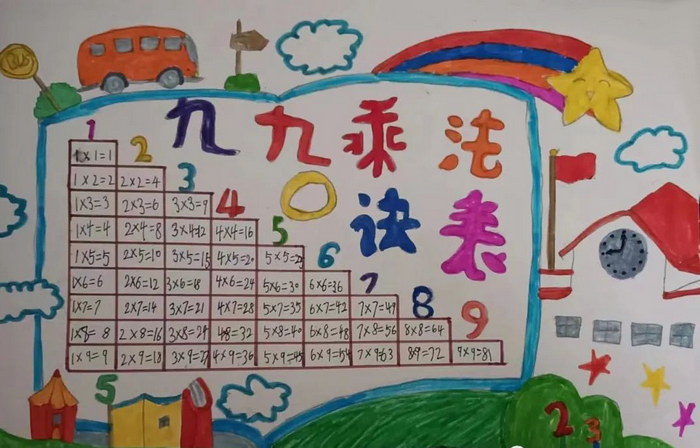 九九乘法
诀表
1
1×1=1
2
1×2=2 2×2=4
3
1×3=3 2×3=6 3×3=9
4
1×4=4 2×4=8 3×4=12 4×4=16
5
1×5=5 2×5=10 3×5=15 4×5=20 5×5=25
6
1×6=6 2×6=12 3×6=18 4×6=24 5×6=30 6×6=36
7
1×7=7 2×7=14 3×7=21 4×7=28 5×7=35 6×7=42 7×7=49
8
1×8=8 2×8=16 3×8=24 4×8=32 5×8=40 6×8=48 7×8=56 8×8=64
9
1×9=9 2×9=18 3×9=27 4×9=36 5×9=45 6×9=54 7×9=63 8×9=72 9×9=81
5
2 3